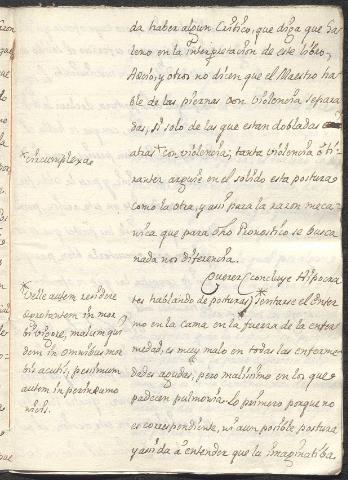 da haber algun Critico, que diga que Ga-
leno en la interpretacion de este libro,
Aecio, y otros no dicen que el Maestro ha-
ble de las piernas con violencia separa-
das, si solo de las que estan dobladas
atras* con violencia; tanta violencia ó ti-
rantez arguie en el solido esta postura
como la otra, y assi para la razon meca-
nica que para dho Pronostico se busca
nada nos diferencia.
Querer (concluye Hipocra-
tes hablando de posturas) *sentarse el enfer-
mo en la cama en la fuerza de la enfer-
medad, es muy malo en todas las enferme-
dades agudas, pero malissimo en los que
padecen pulmonia. Lo primero porque no
es correspondiente, ni aun posible postura
y assi da á entender que la imaginatiba
*circumplexae
*Velle autem residere
aegrotantem in mor-
bi vigore, malum qui-
dem in omnibus mor-
bis acutis, pessimum
autem in peripneumo-
nicis.